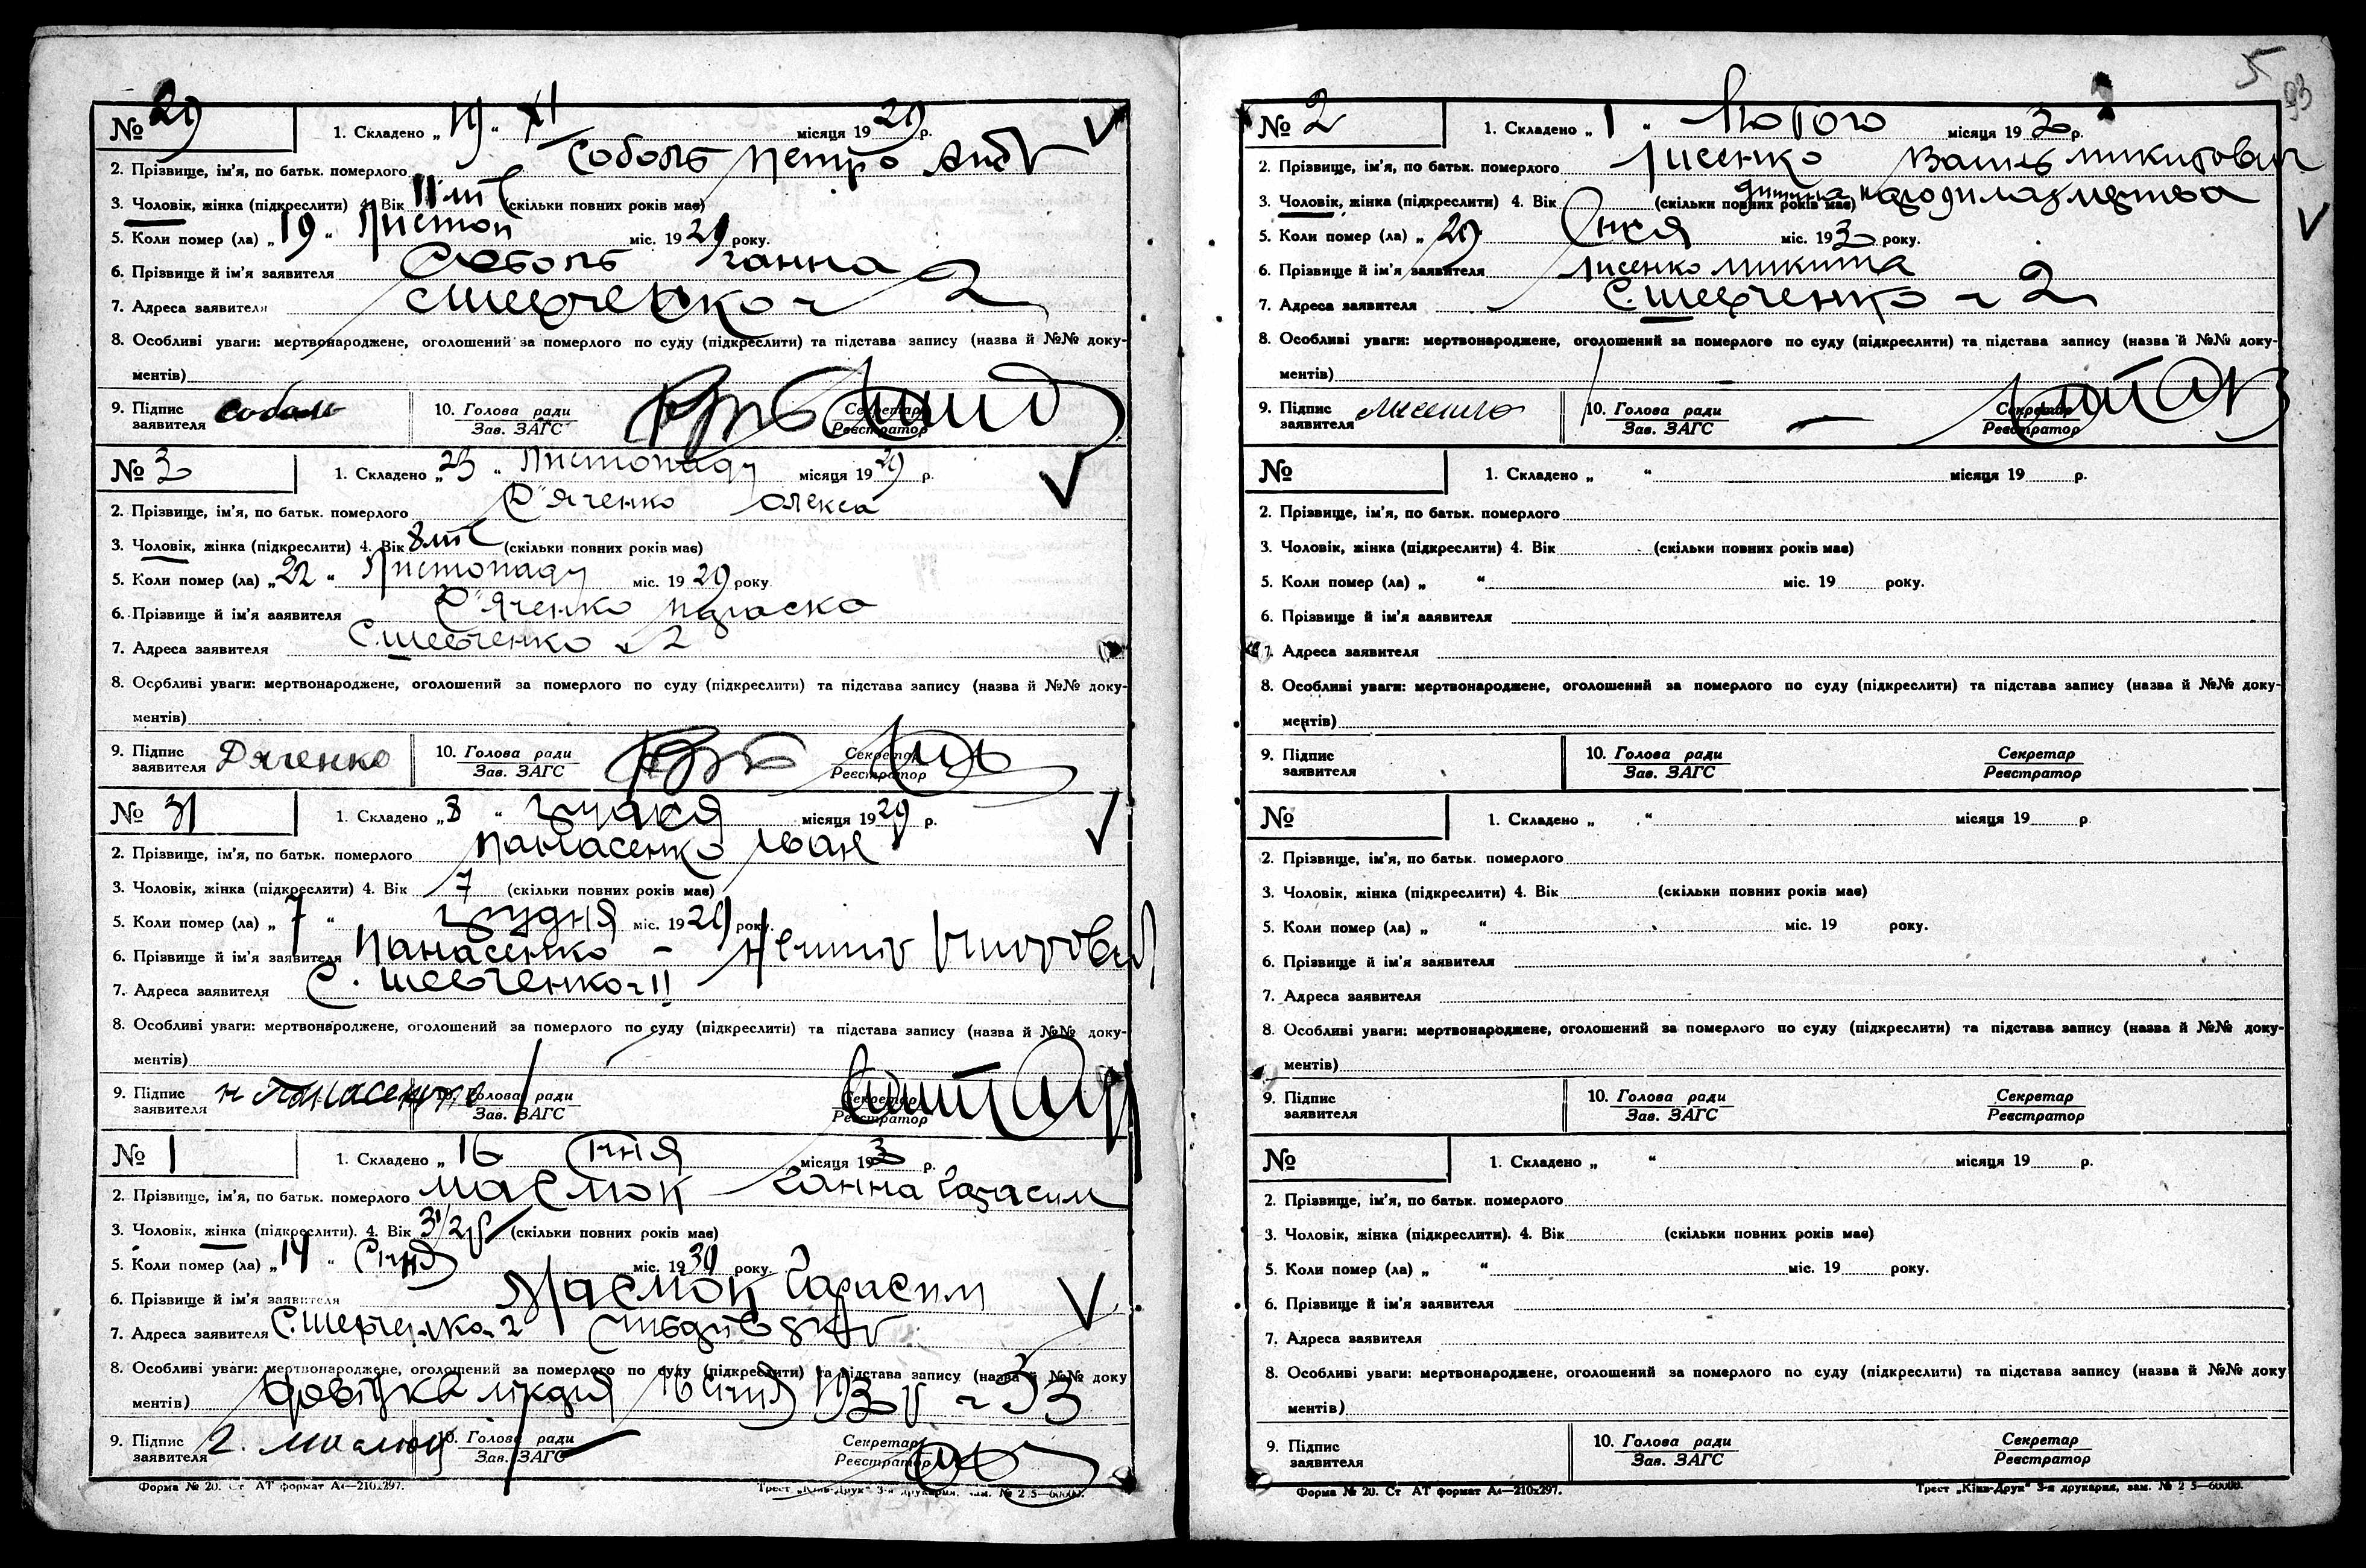 № 29 1. Складено „ 19 “ XI місяця 1929 р.
2. Прізвище, ім'я, по батьк. померлого Соболь Петро
3. Чоловік, жінка (підкреслити) 4. Вік 11 міс (скільки повних років має)
5. Коли помер (ла) „ 19 “ Листоп міс. 1929 року.
6. Прізвище й ім'я заявителя Соболь Ганна
7. Адреса заявителя с Шевченко ч 2
8. Особливі уваги: мертвонароджене, оголошений за померлого по суду (підкреслити) та підстава запису (назва й №№ доку-
ментів)
9. Підпис заявителя Соболь 10. Голова ради Зав. ЗАГС Секретар Реєстратор
№ 3 1. Складено „ 23 “ Листопаду місяця 1929 р.
2. Прізвище, ім'я, по батьк. померлого Д'яченко Олекса
3. Чоловік, жінка (підкреслити) 4. Вік 8 міс (скільки повних років має)
5. Коли помер (ла) „ 22 “ Листопаду міс. 1929 року
6. Прізвище й ім'я заявителя Д'яченко Параска
7. Адреса заявителя С. Шевченко ч 2
8. Особливі уваги: мертвонароджене, оголошений за померлого по суду (підкреслити) та підстава запису (назва й №№ доку-
ментів)
9. Підпис заявителя Дяченко 10. Голова ради Зав. ЗАГС Секретар Реєстратор
№ 31 1. Складено „ 8 “ місяця 1929 р.
2. Прізвище, ім'я, по батьк. померлого Панасенко Іван
3. Чоловік, жінка (підкреслити) 4. Вік 7 (скільки повних років має)
5. Коли помер (ла) „ 7 “ грудня міс. 1929 року.
6. Прізвище й ім'я заявителя Панасенко –
7. Адреса заявителя С. Шевченко ч II
8. Особливі уваги: мертвонароджене, оголошений за померлого по суду (підкреслити) та підстава запису (назва й №№ доку-
ментів)
9. Підпис заявителя Н Панасенко 10. Голова ради Зав. ЗАГС Секретар Реєстратор
№ 1 1. Складено „ 16 січня місяця 193 р.
2. Прізвище, ім'я, по батьк. померлого Маслюк Ганна Гарасим
3. Чоловік, жінка (підкреслити). 4. Вік 3 1/2 р (скільки повних років має)
5. Коли помер (ла) „ 14 “ Січня міс. 1930 року.
6. Прізвище й ім'я заявителя Маслюк Гарасим
7. Адреса заявителя С. Шевченко ч 2
8. Особливі уваги: мертвонароджене, оголошений за померлого по суду (підкреслити) та підстава запису (назва й №№ доку
ментів) Довідка лікаря 16 січня
9. Підпис заявителя Г. Маслюк 10. Голова ради Зав. ЗАГС Секретар Реєстратор
Форма № 20. Ст АТ формат А4—210x297. Трест „Київ-Друк“ 3-я друкарня, зам. № 2 5—60000.
5
93
№ 2 1. Складено „ 1 “ Лютого місяця 193 р.
2. Прізвище, ім'я, по батьк. померлого Лисенко Василь Микитович
3. Чоловік, жінка (підкреслити) 4. Вік (скільки повних років має) дитина народилась мертва
5. Коли помер (ла) „ 29 січня міс. 193 року.
6. Прізвище й ім'я заявителя Лисенко Микита
7. Адреса заявителя С. Шевченко ч 2
8. Особливі уваги: мертвонароджене, оголошений за померлого по суду (підкреслити) та підстава запису (назва й №№ доку-
ментів)
9. Підпис заявителя 10. Голова ради Зав. ЗАГС Секретар Реєстратор
№ 1. Складено „ “ місяця 19 р.
2. Прізвище, ім'я, по батьк. померлого
3. Чоловік, жінка (підкреслити) 4. Вік (скільки повних років має)
5. Коли помер (ла) „ “ міс. 19 року.
6. Прізвище й ім'я заявителя
7. Адреса заявителя
8. Особливі уваги: мертвонароджене, оголошений за померлого по суду (підкреслити) та підстава запису (назва й №№ доку-
ментів)
9. Підпис заявителя 10. Голова ради Зав. ЗАГС Секретар Реєстратор
№ 1. Складено „ “ місяця 19 р
2. Прізвище, ім'я, по батьк. померлого
3. Чоловік, жінка (підкреслити) 4. Вік (скільки повних років має)
5. Коли помер (ла) „ “ міс. 19 року.
6. Прізвище й ім'я заявителя
7. Адреса заявителя
8. Особливі уваги: мертвонароджене, оголошений за померлого по суду (підкреслити) та підстава запису (назва й №№ доку-
ментів)
9. Підпис заявителя 10. Голова ради Зав. ЗАГС Секретар Реєстратор
№ 1. Складено „ “ місяця 19 р.
2. Прізвище, ім'я, по батьк. померлого
3. Чоловік, жінка (підкреслити). 4. Вік (скільки повних років має)
5. Коли помер (ла) „ “ міс. 19 року.
6. Прізвище й ім'я заявителя
7. Адреса заявителя
8. Особливі уваги: мертвонароджене, оголошений за померлого по суду (підкреслити) та підстава запису (назва й №№ доку
ментів)
9. Підпис заявителя 10. Голова ради Зав. ЗАГС Секретар Реєстратор
Форма № 20. Ст АТ формат А4—210x297. Трест „Київ-Друк“ 3-я друкарня, зам. № 2 5—60000.